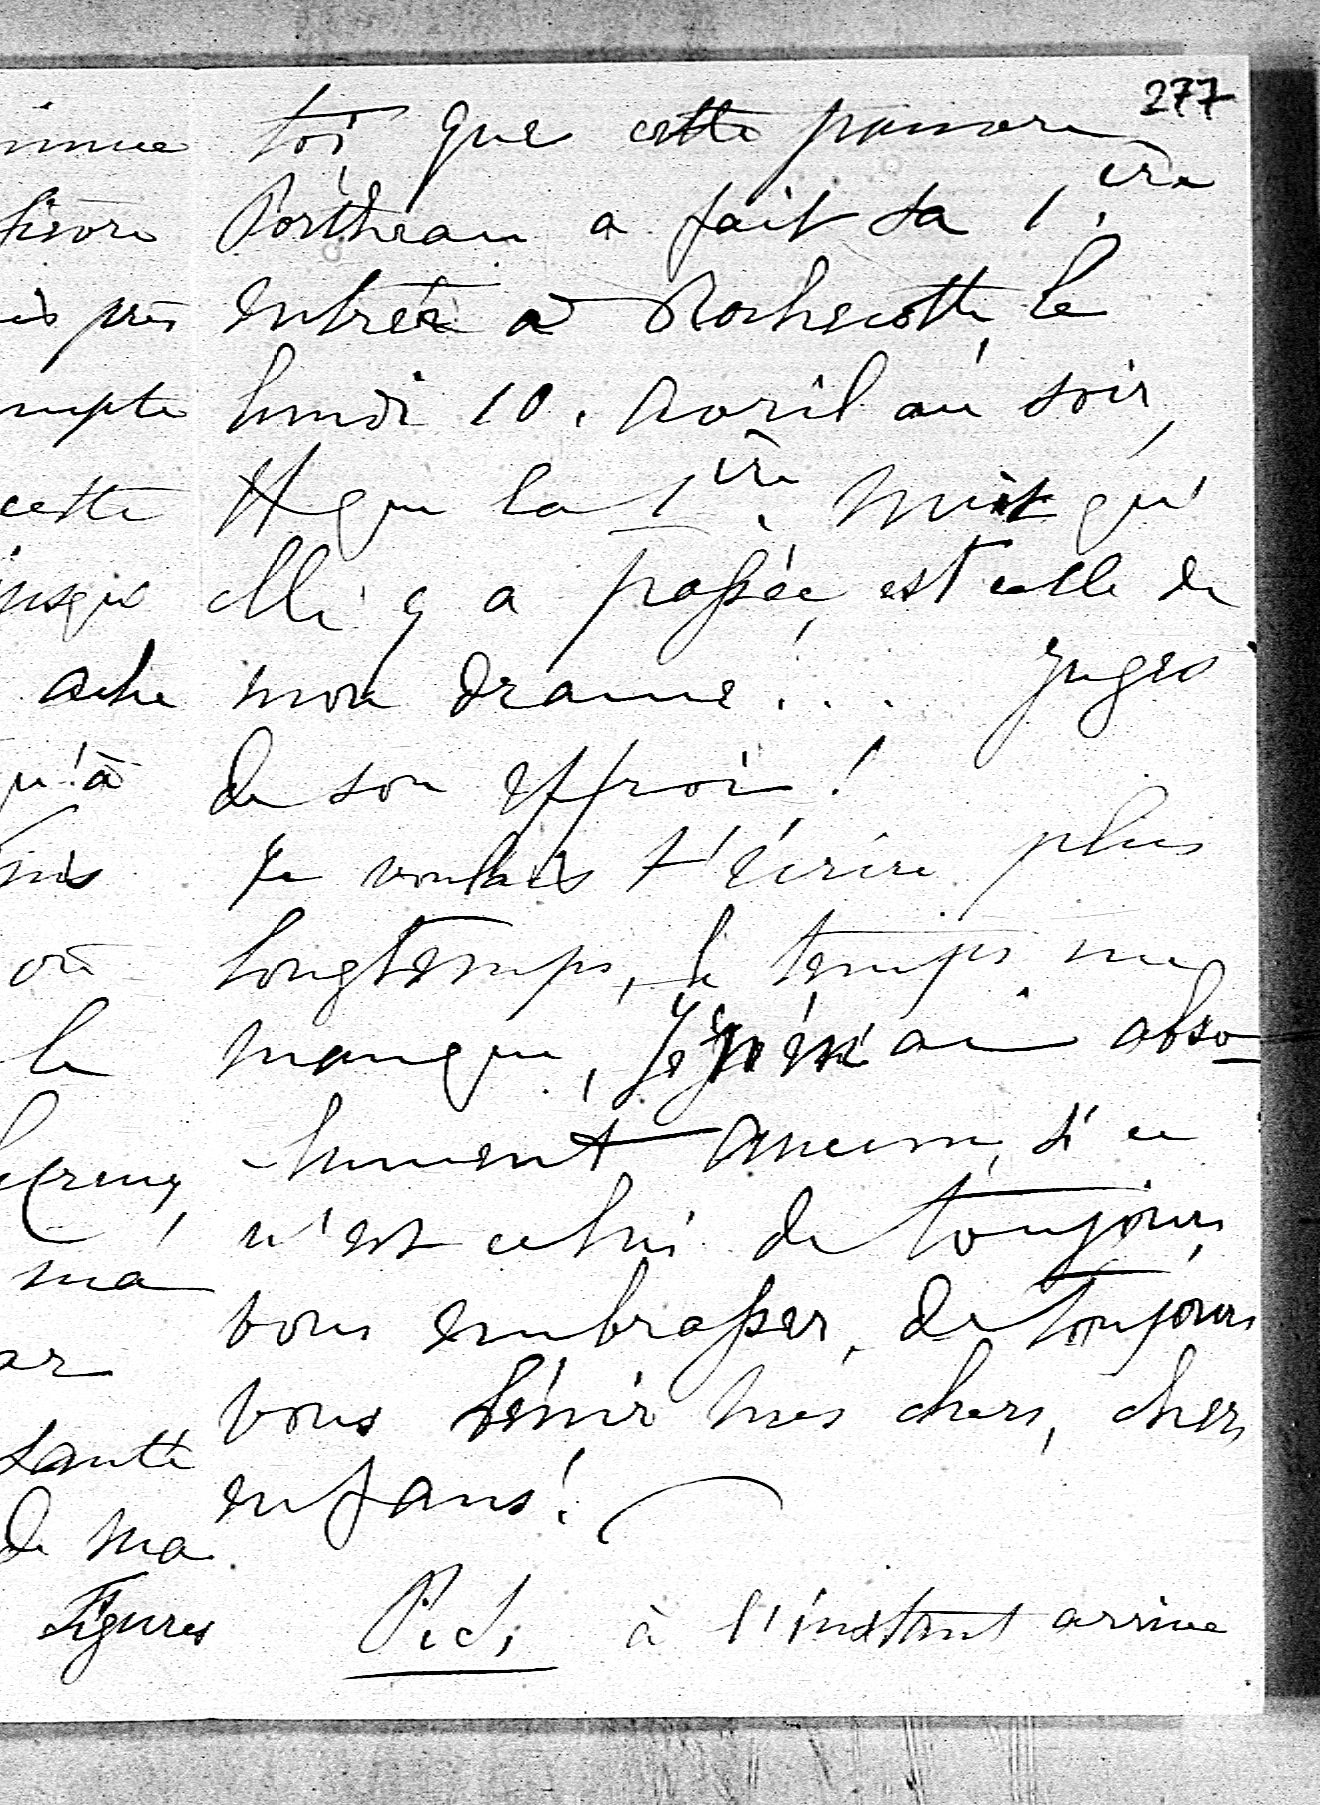 277
toi que cette pauvre
Portheau a fait sa 1.ère
entrée à Rochecotte, le
lundi 10. avril au soir,
et que la 1ère nuit qu'
elle y a passée, est celle de
mon drame!... Juges
de son effroi!
Je voulais t'écrire plus
longtemps, le temps me
manque, je n'en ai abso-
-lument aucun, si ce
n'est celui de toujours
vous embrasser, de toujours
vous bénir mes chers, chers
enfans!
P.S. à l'instant arrive
cette
où
le
ma
santé
de ma
Figures